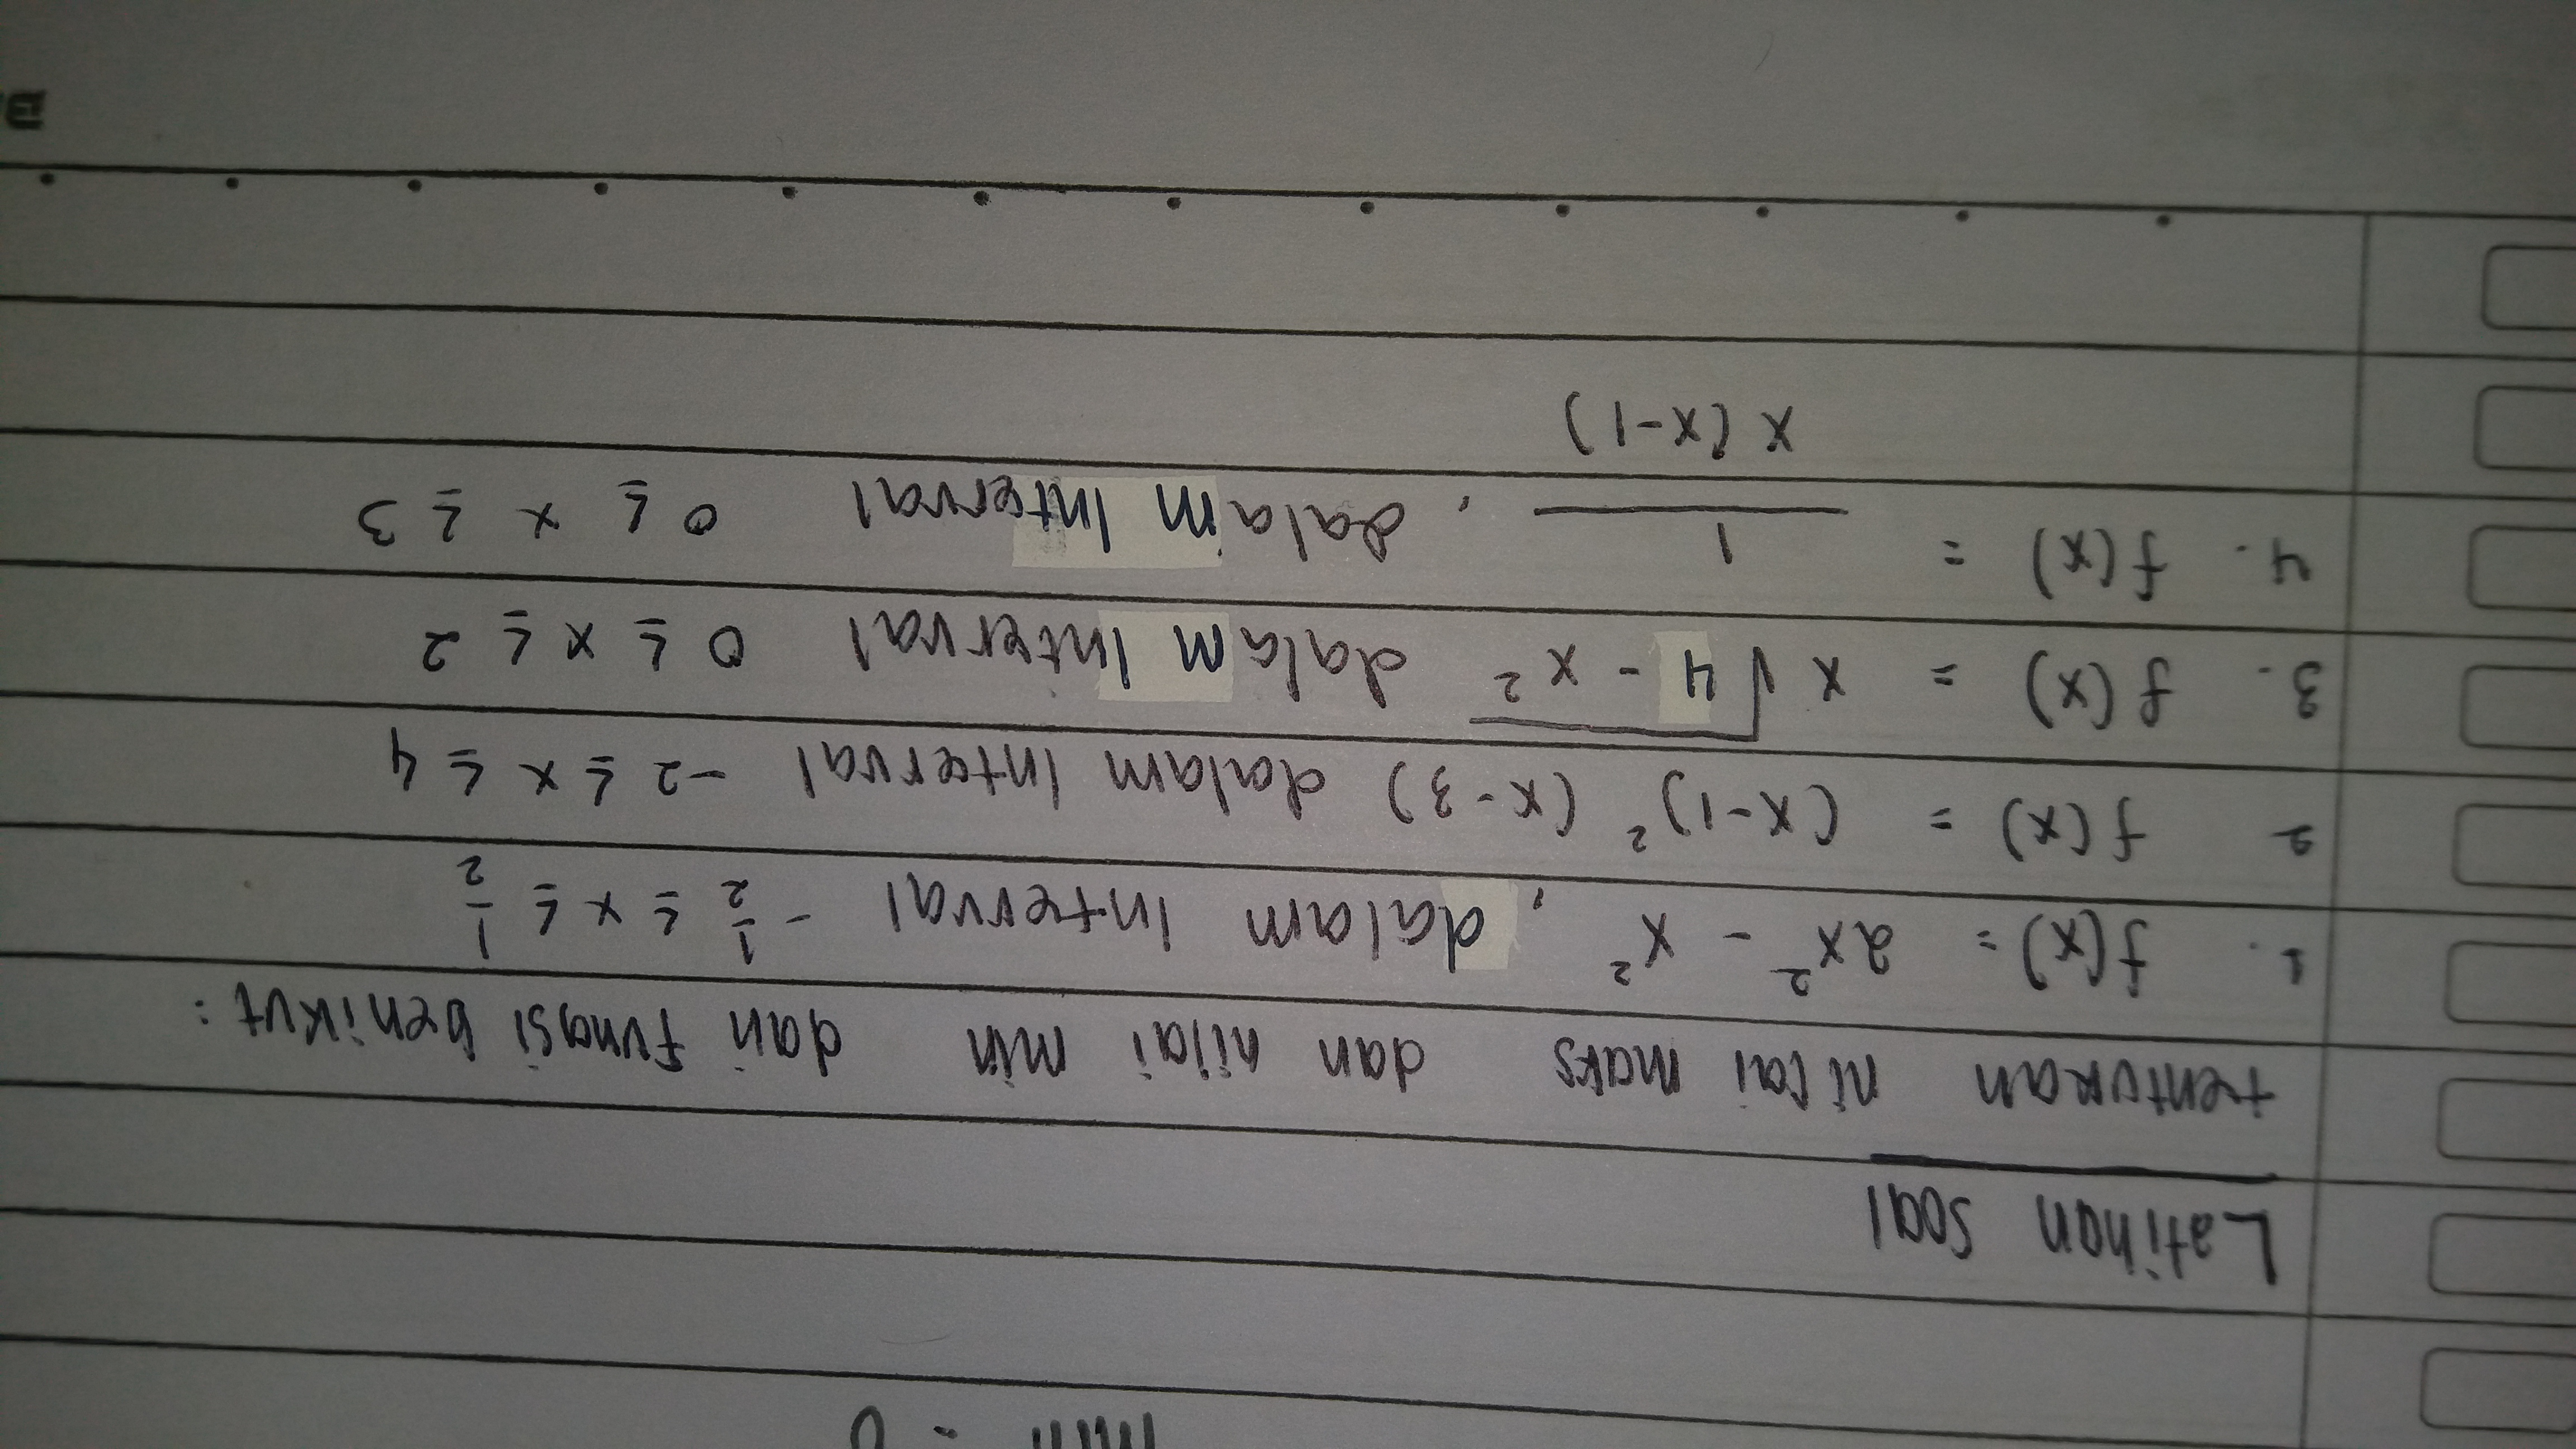 Latihan soal
tentukan nilai maks dan nilai min dari fungsi berikut:
1. f(x) = 2x² - x², dalam Interval -1/2 ≤ x ≤ 1/2
2 f(x) = (x-1)² (x-3) dalam Interval -2 ≤ x ≤ 4
3. f(x) = x √4 - x² dalam Interval 0 ≤ x ≤ 2
4. f(x) = 1 , dalam Interval 0 ≤ x ≤ 3
x(x-1)